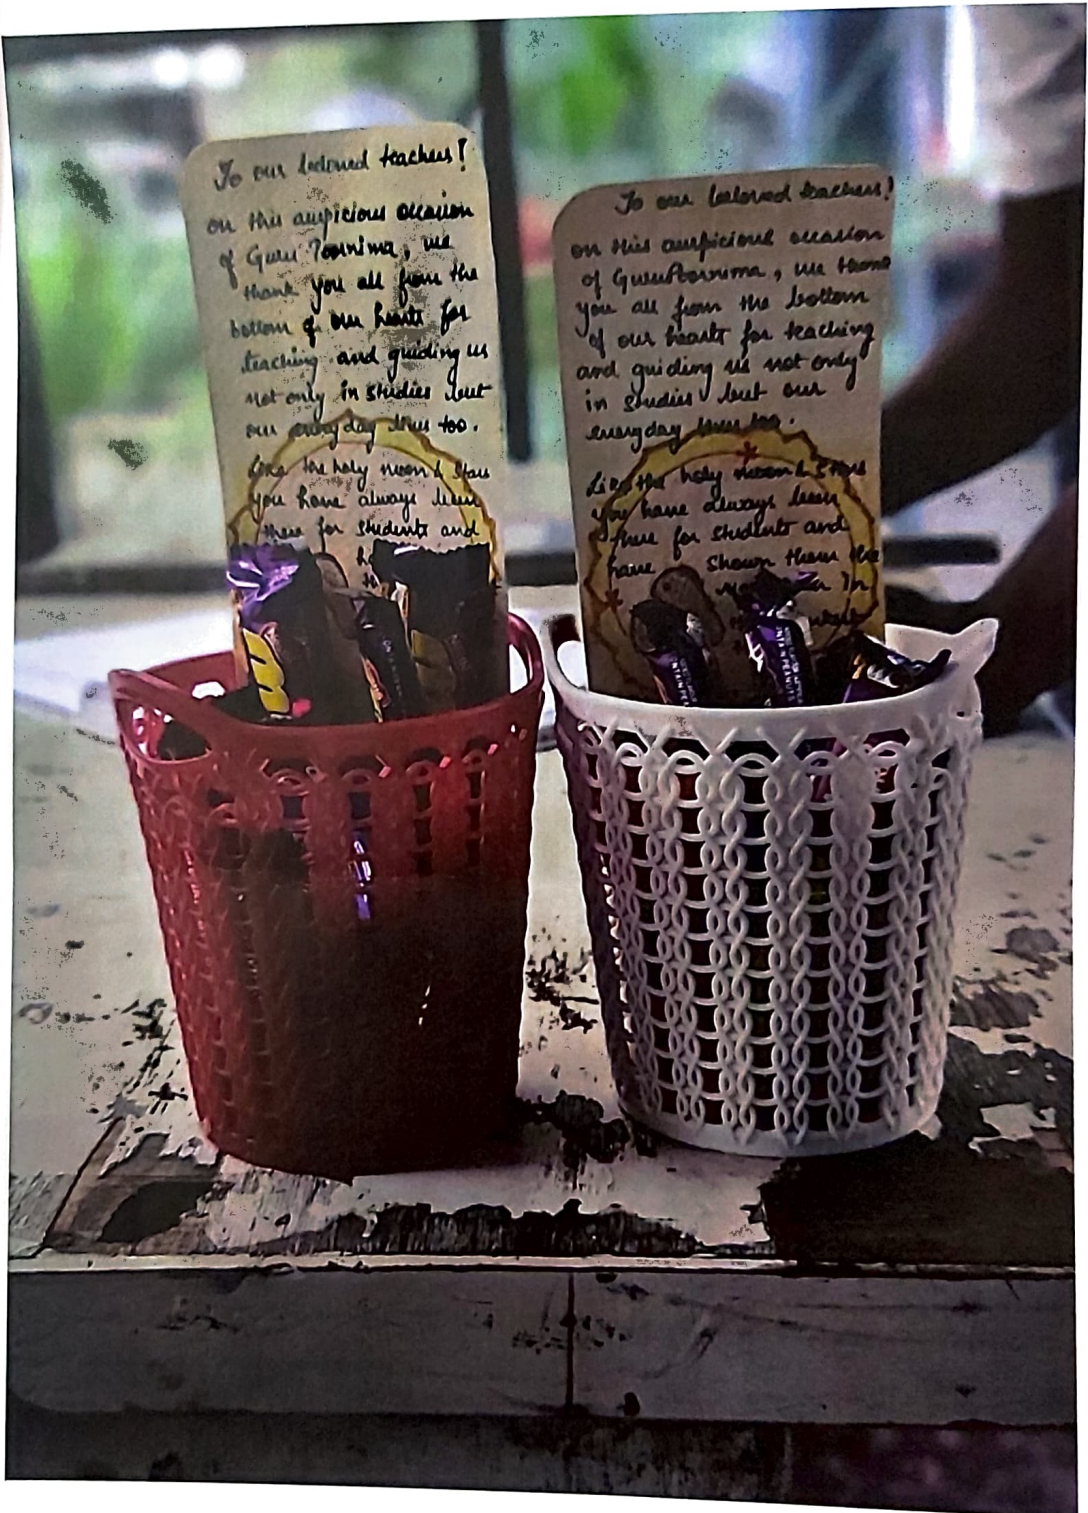 To our beloved teachers!
on this auspicious occasion
of Guru Poornima, we
thank you all from the
bottom of our hearts for
teaching and guiding us
not only in studies but
our everyday lives too.
Like the holy moon & stars
you have always been
there for students and
To our beloved teachers!
on this auspicious occasion
of GuruPoornima, we thank
you all from the bottom
of our hearts for teaching
and guiding us not only
in studies but our
everyday lives too.
Like the holy moon & stars
you have always been
there for students and
have shown them the
in